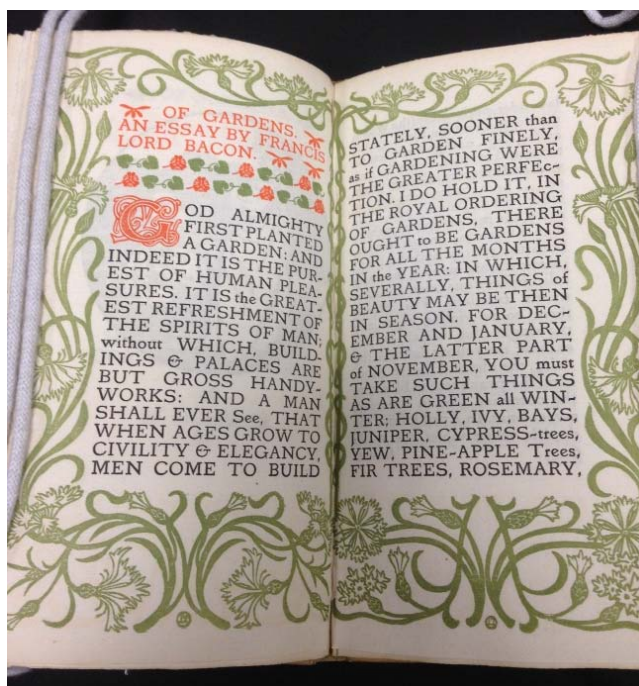 OF GARDENS.
AN ESSAY BY FRANCIS
LORD BACON.
GOD ALMIGHTY
FIRST PLANTED
A GARDEN: AND
INDEED IT IS THE PUR-
EST OF HUMAN PLEA-
SURES. IT IS the GREAT-
EST REFRESHMENT OF
THE SPIRITS OF MAN;
without WHICH, BUILD-
INGS & PALACES ARE
BUT GROSS HANDY-
WORKS: AND A MAN
SHALL EVER See, THAT
WHEN AGES GROW TO
CIVILITY & ELEGANCY,
MEN COME TO BUILD
STATELY, SOONER than
TO GARDEN FINELY,
as if GARDENING WERE
THE GREATER PERFEc-
TION. I DO HOLD IT, IN
THE ROYAL ORDERING
OF GARDENS, THERE
OUGHT to BE GARDENS
FOR ALL THE MONTHS
IN the YEAR: IN WHICH,
SEVERALLY, THINGS of
BEAUTY MAY BE THEN
IN SEASON. FOR DEC-
EMBER AND JANUARY,
& THE LATTER PART
of NOVEMBER, YOU must
TAKE SUCH THINGS
AS ARE GREEN all WIN-
TER: HOLLY, IVY, BAYS,
JUNIPER, CYPRESS-trees,
YEW, PINE-APPLE Trees,
FIR TREES, ROSEMARY,